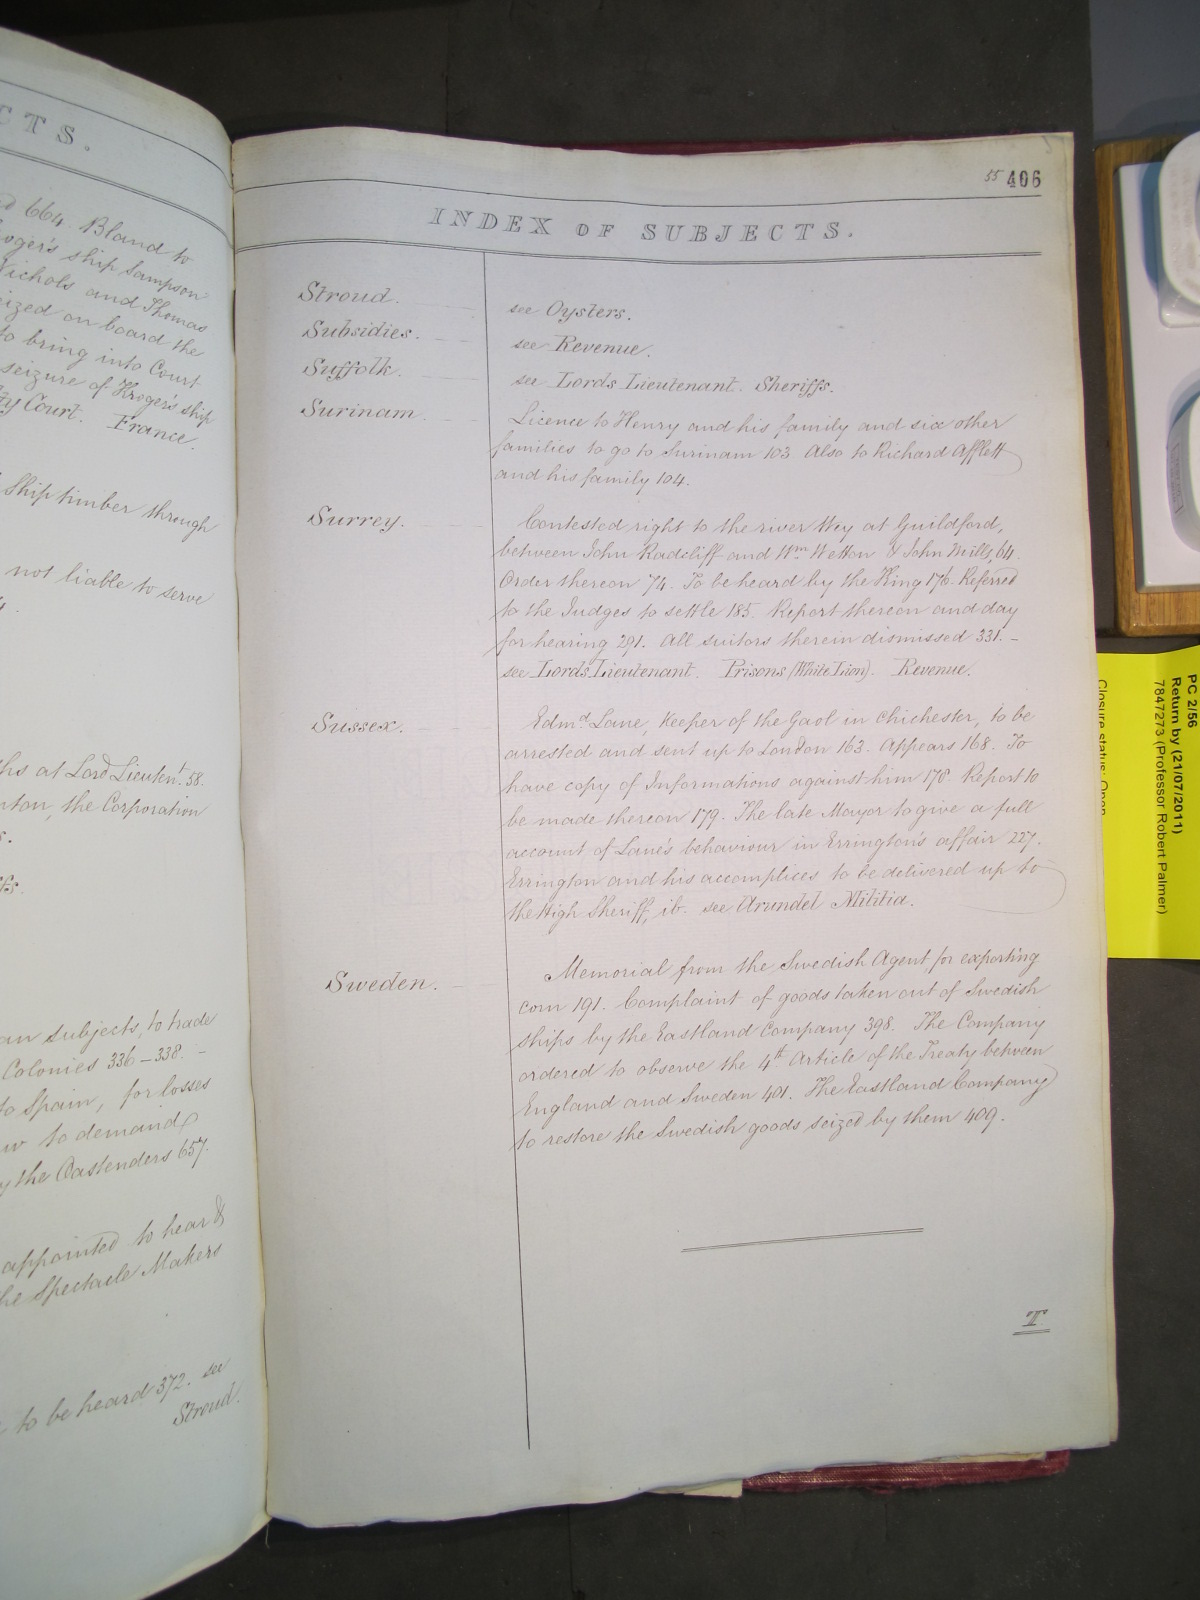 CTS.
d 664. Bland to
oger's ship Sampson
Nichols and Thomas
ized on board the
to bring into Court
seizure of Kroger's ship
ty Court. France.
Ship timber through
not liable to serve
4.
hs at Lord Lieutent. 58.
nton, the Corporation
an Subjects, to trade
Colonies 336-338. -
to Spain, for losses
w to demand
y the Oastenders 657.
appointed to hear &
he Spectacle Makers
to be heard 372. see
Stroud.
55 406
INDEX OF SUBJECTS.
Stroud. see Oysters.
Subsidies. see Revenue.
Suffolk. see Lords Lieutenant. Sheriffs.
Surinam. Licence to Henry and his family and six other
families to go to Surinam 103. Also to Richard Afflett
and his family 104.
Surrey. Contested right to the river Wey at Guildford,
between John Radcliff and Wm. Wetton & John Mills, 64.
Order thereon 74. To be heard by the King 176. Referred
to the Judges to settle 185. Report thereon and day
for hearing 291. All suitors therein dismissed 331. -
see Lords Lieutenant. Prisons (White Lion). Revenue.
Sussex. Edmd. Lane, Keeper of the Gaol in Chichester, to be
arrested and sent up to London 163. Appears 168. To
have copy of Informations against him 178. Report to
be made thereon 179. The late Mayor to give a full
account of Lane's behaviour in Errington's affair 227.
Errington and his accomplices to be delivered up to
the High Sheriff, ib. see Arundel Militia.
Sweden. Memorial from the Swedish Agent for exporting
corn 191. Complaint of goods taken out of Swedish
ships by the Eastland Company 398. The Company
ordered to observe the 4th Article of the Treaty between
England and Sweden 401. The Eastland Company
to restore the Swedish goods seized by them 409.
T
PC 2/56
Return by (21/07/2011)
7847273 (Professor Robert Palmer)
Closure status: Open